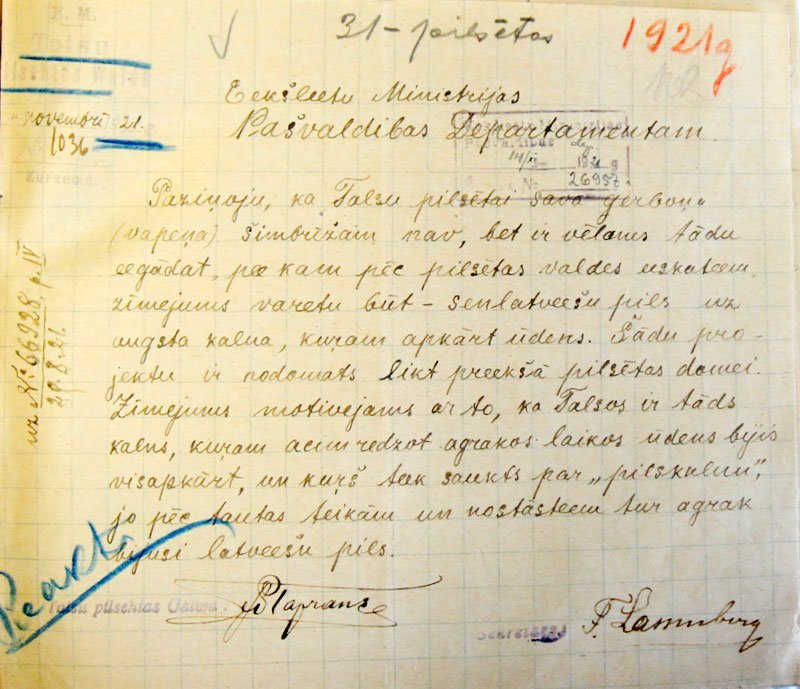 31 - pilsētas
1921 g
E. M.
Talsu
novembrī 21.
1036
Kurzemē
Eekšleetu Ministrijas
Pašvaldības Departamentam.
Pašvaldības
1921 g
№ 26957
uz № 66928, p. IV
29.8.21.
Paziņoju, ka Talsu pilsētai sava ģerboņa
(vapeņa) šimbrīžam nav, bet ir vēlams tādu
eegādat, pee kam pēc pilsētas valdes uskateem,
zīmejums varetu būt - senlatveešu pils uz
augsta kalna, kuŗam apkārt ūdens. Šādu pro-
jektu ir nodomāts likt preekšā pilsētas domei.
Zīmejums motivejams ar to, ka Talsos ir tāds
kalns, kuŗam acimredzot agrakos laikos ūdens bijis
visapkārt, un kuŗš teek saukts par „pilskalnu”,
jo pēc tautas teikām un nostāsteem tur agrak
bijusi latveešu pils.
Talsu pilsehtas Galwa.
Sekretars